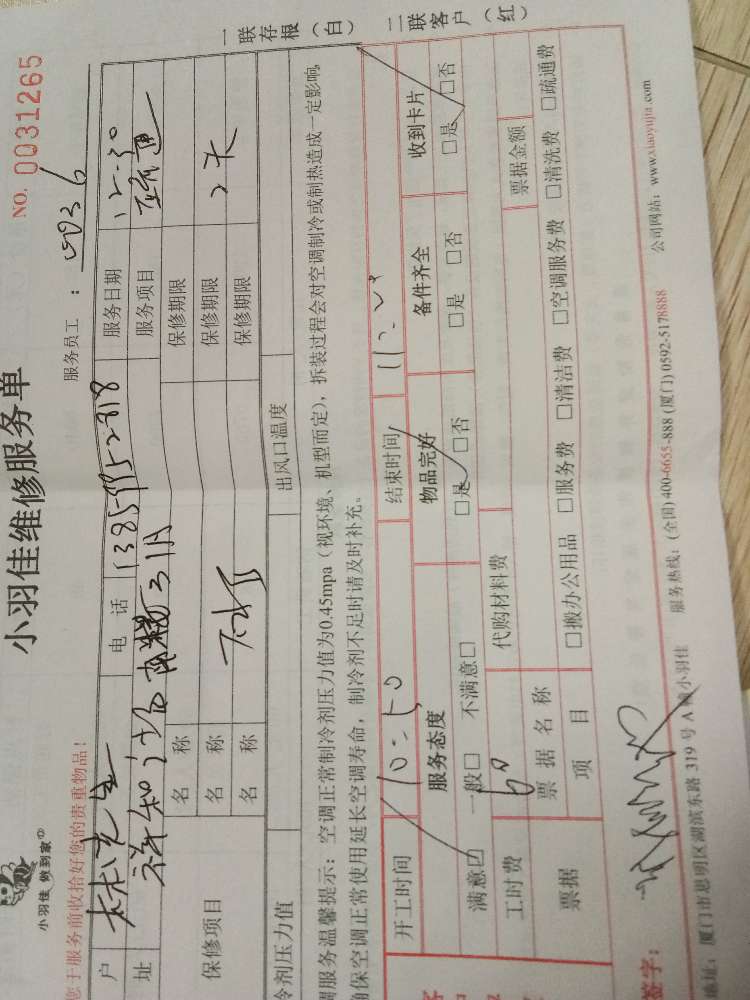 小羽佳 做到家
小羽佳维修服务单
NO. 0031265
您于服务前收拾好您的贵重物品!
服务员工:
一联存根(白) 二联客户(红)
户 林先生 电话 服务日期 12-30
址 服务项目
保修项目 名称 保修期限
名称 保修期限 2天
名称 保修期限
冷剂压力值 出风口温度
调服务温馨提示:空调正常制冷剂压力值为0.45mpa(视环境、机型而定),拆装过程会对空调制冷或制热造成一定影响,
确保空调正常使用延长空调寿命,制冷剂不足时请及时补充。
开工时间 10:50 结束时间
服务态度 物品完好 备件齐全 收到卡片
满意□ 一般□ 不满意□ □是 □否 □是 □否 □是 □否
工时费 60 代购材料费 票据金额
票据 票据名称
项目 □搬办公用品 □服务费 □清洁费 □空调服务费 □清洗费 □疏通费
签字:
地址:厦门市思明区湖滨东路319号A幢小羽佳 服务热线:(全国)400-6655-888 (厦门)0592-5178888 公司网站:www.xiaoyujia.com